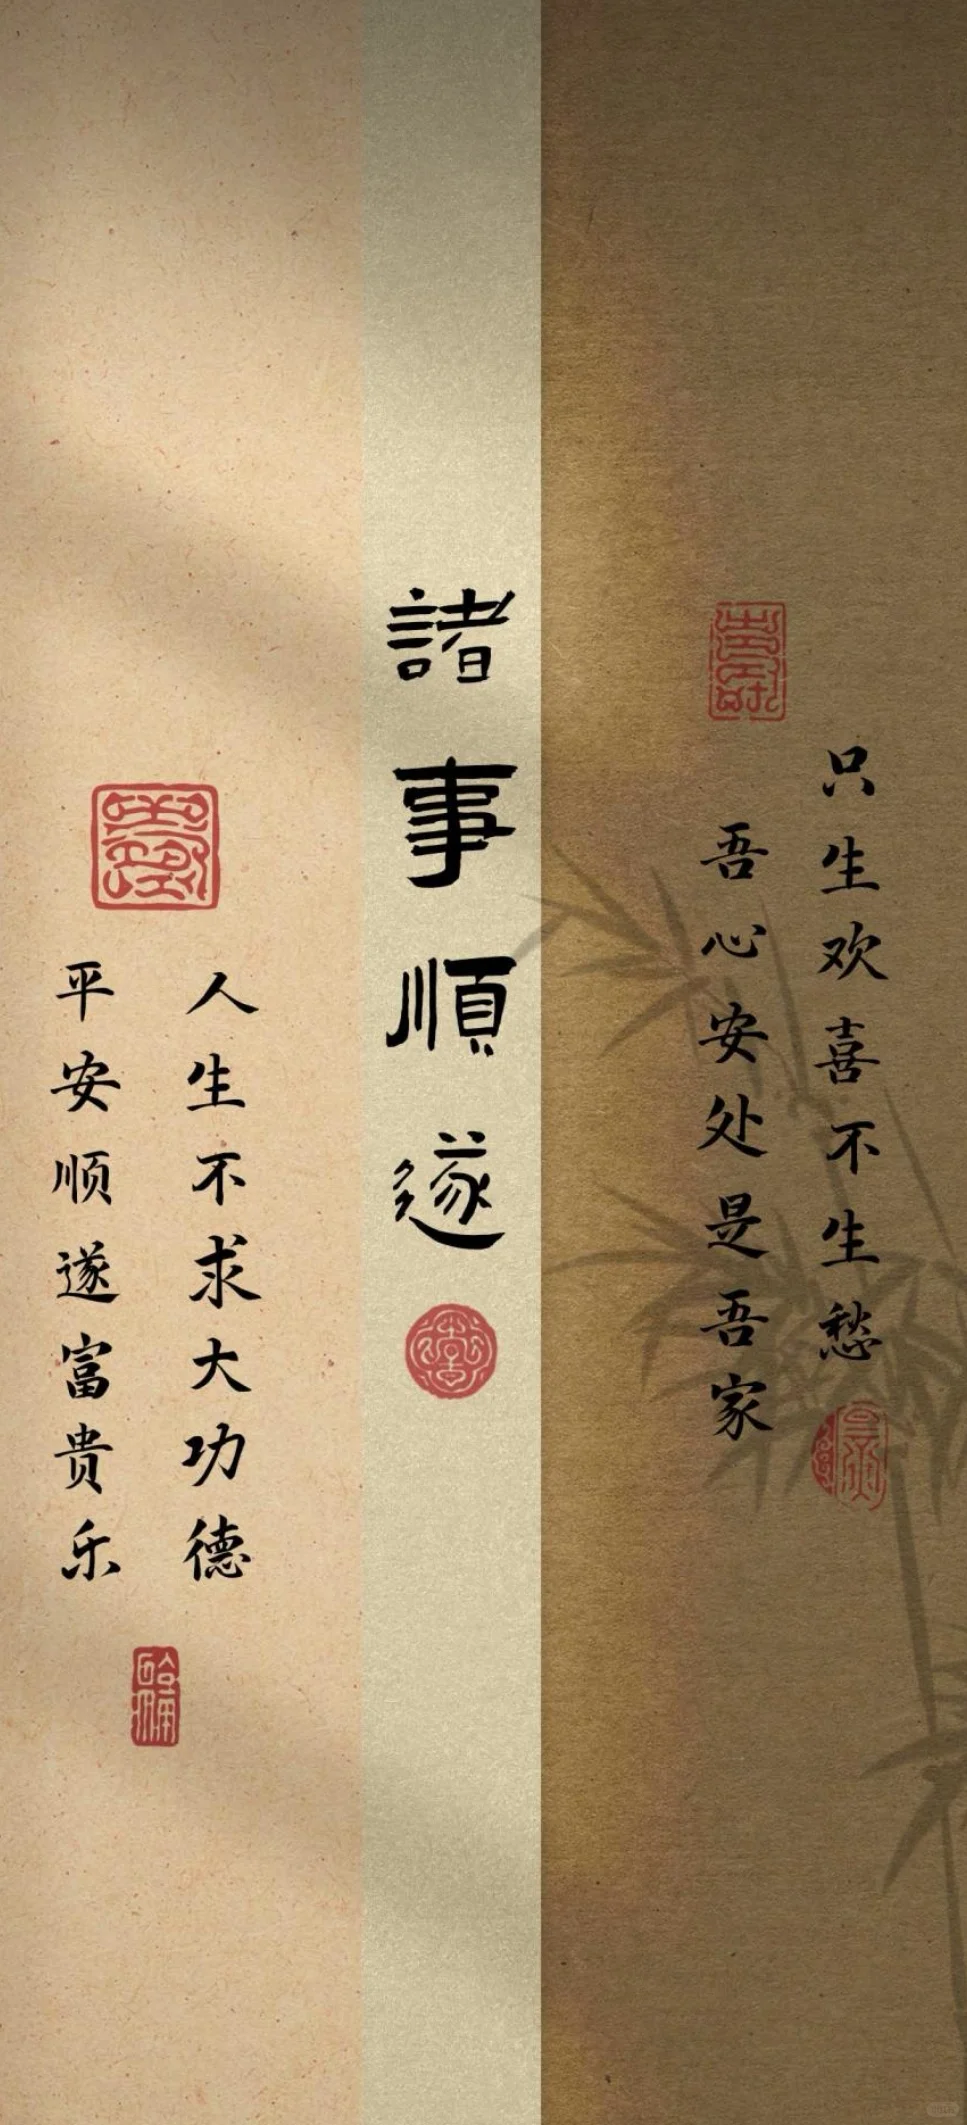 只生欢喜不生愁
吾心安处是吾家
諸事順遂
人生不求大功德
平安顺遂富贵乐